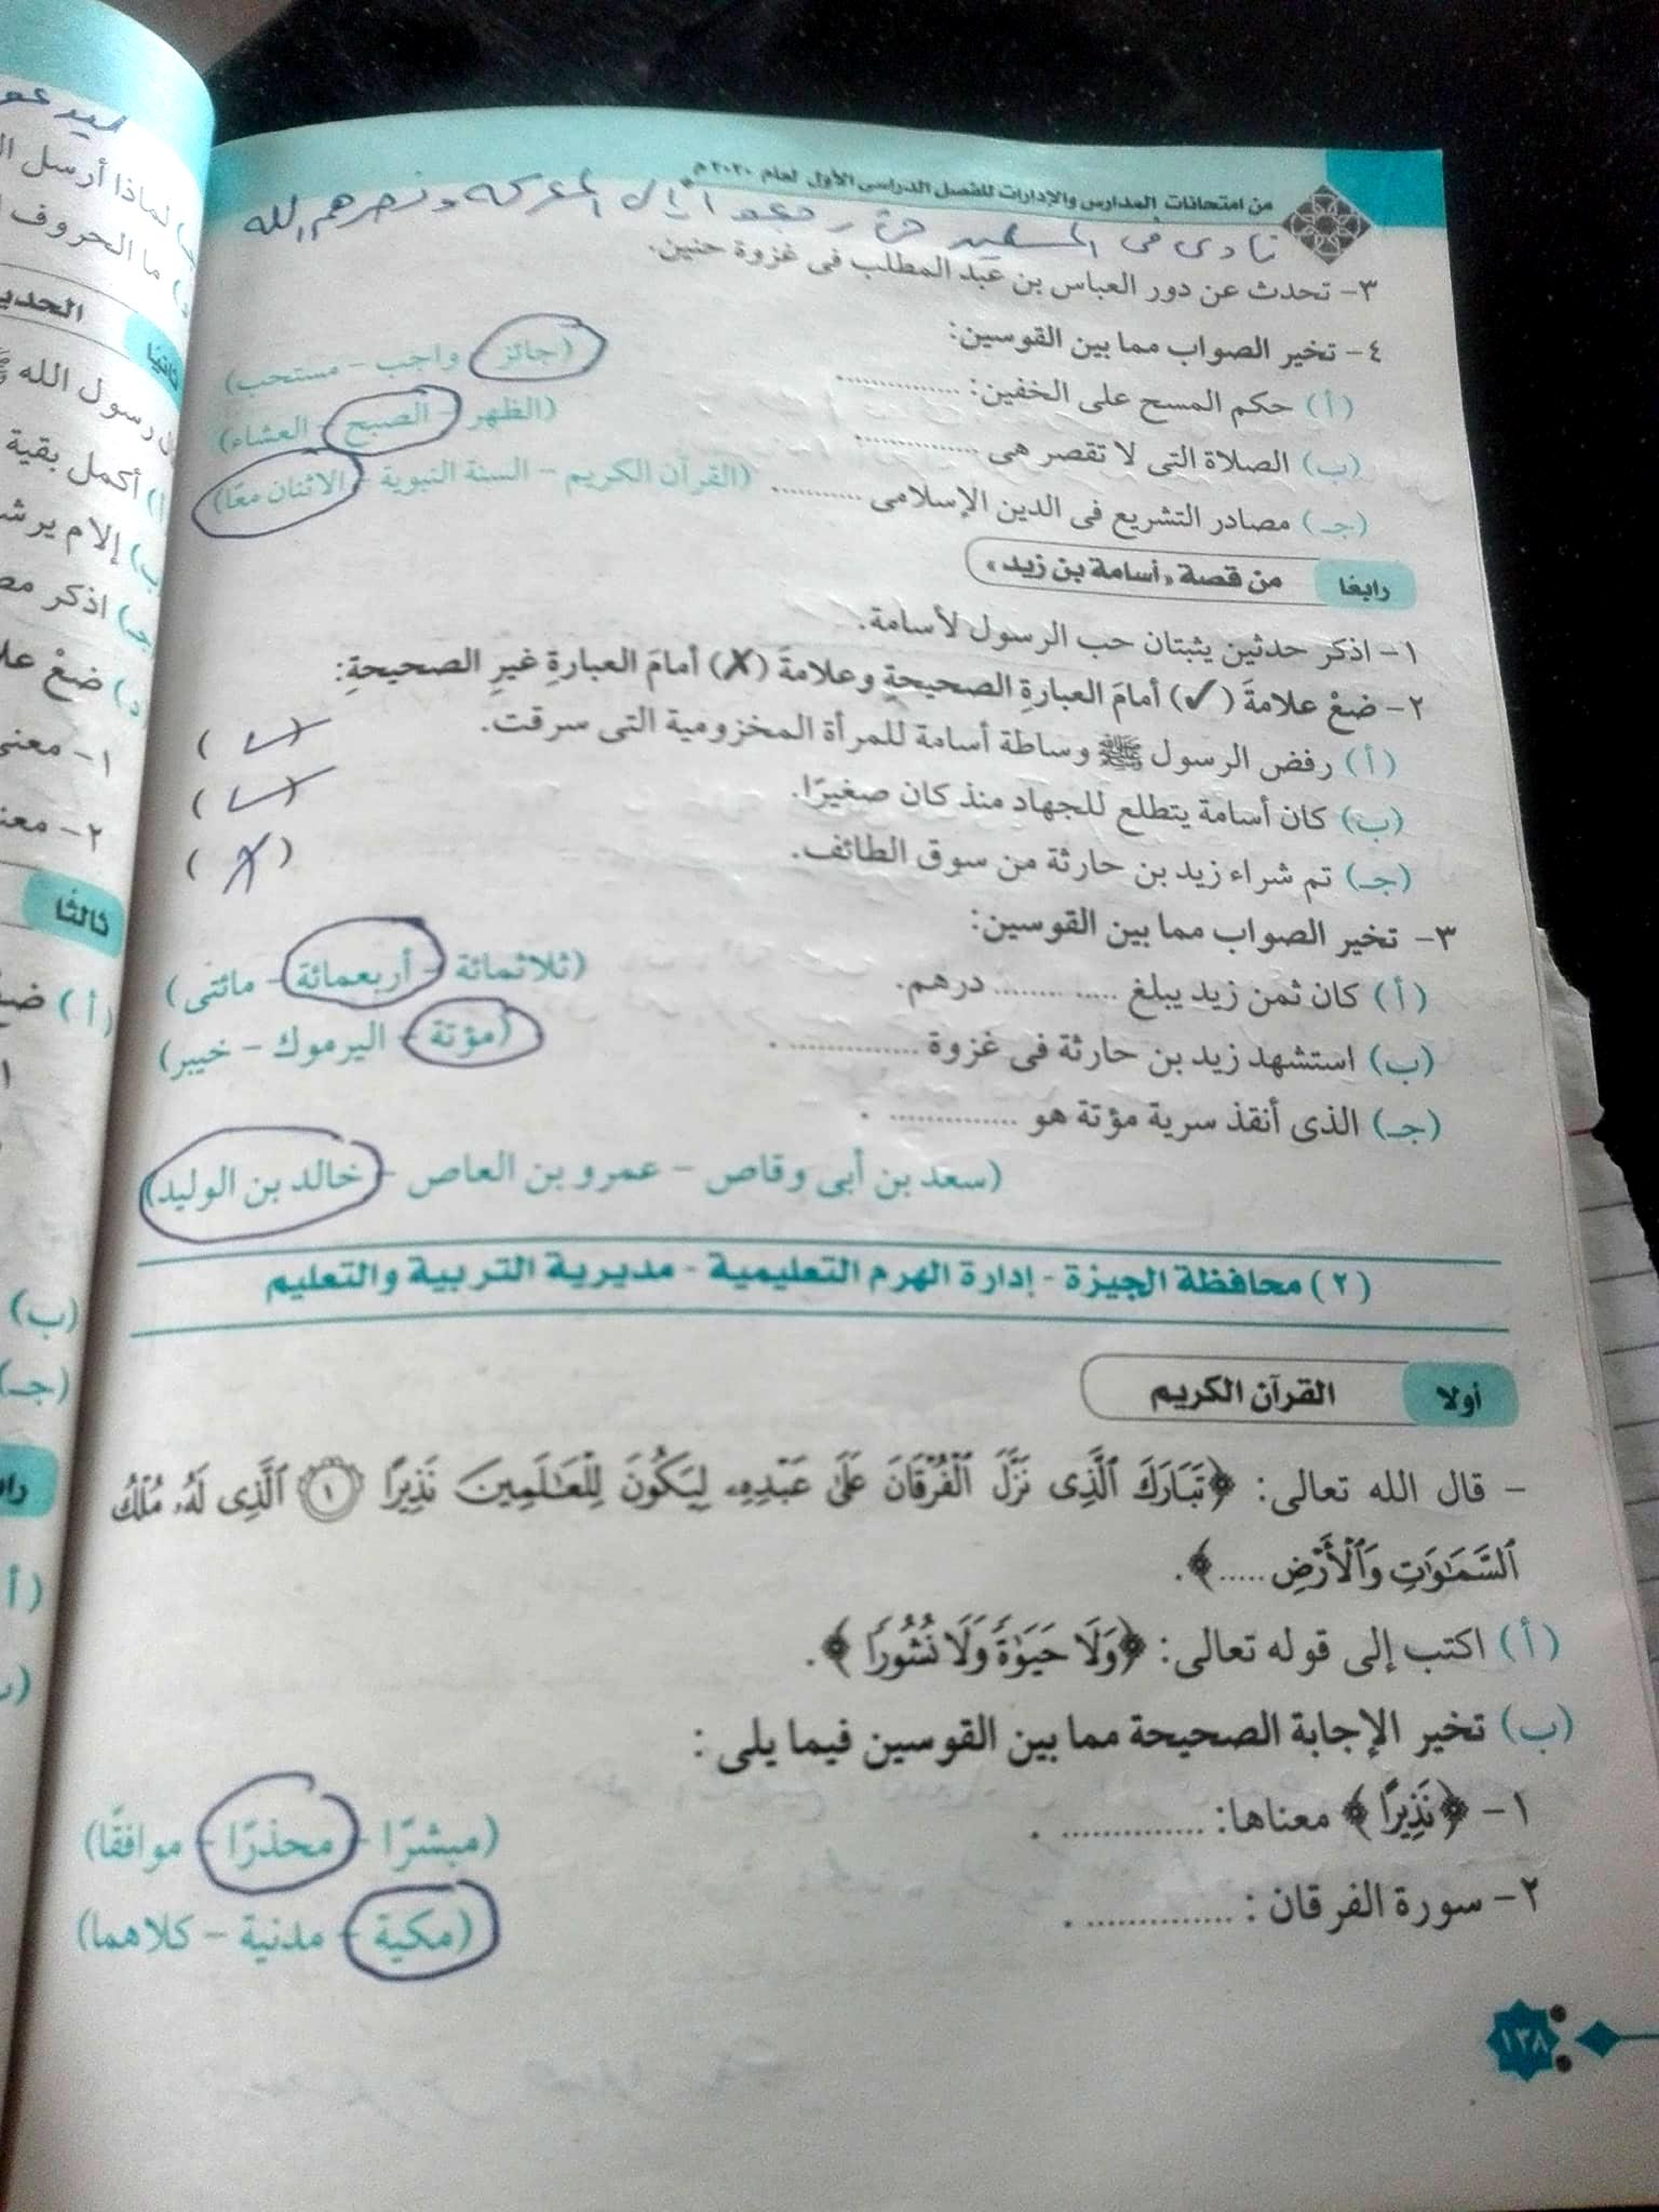 من امتحانات المدارس والإدارات للفصل الدراسى الأول لعام ٢٠٢٠ م
نادى فى المسلمين حتى رجعوا إلى المعركة ونصرهم الله
٣- تحدث عن دور العباس بن عبد المطلب فى غزوة حنين.
٤- تخير الصواب مما بين القوسين:
(أ) حكم المسح على الخفين: .............. (جائز - واجب - مستحب)
(ب) الصلاة التى لا تقصر هى .............. (الظهر - الصبح - العشاء)
(جـ) مصادر التشريع فى الدين الإسلامى .......... (القرآن الكريم - السنة النبوية - الاثنان معًا)
رابعًا من قصة «أسامة بن زيد»
١- اذكر حدثين يثبتان حب الرسول لأسامة.
٢- ضعْ علامةَ (✓) أمامَ العبارةِ الصحيحةِ وعلامةَ (✗) أمامَ العبارةِ غيرِ الصحيحةِ:
(أ) رفض الرسول ﷺ وساطة أسامة للمرأة المخزومية التى سرقت. (✓)
(ب) كان أسامة يتطلع للجهاد منذ كان صغيرًا. (✓)
(جـ) تم شراء زيد بن حارثة من سوق الطائف. (✗)
٣- تخير الصواب مما بين القوسين:
(أ) كان ثمن زيد يبلغ .............. درهم. (ثلاثمائة - أربعمائة - مائتى)
(ب) استشهد زيد بن حارثة فى غزوة .............. . (مؤتة - اليرموك - خيبر)
(جـ) الذى أنقذ سرية مؤتة هو .............. .
(سعد بن أبى وقاص - عمرو بن العاص - خالد بن الوليد)
(٢) محافظة الجيزة - إدارة الهرم التعليمية - مديرية التربية والتعليم
أولا القرآن الكريم
- قال الله تعالى: ﴿تَبَارَكَ ٱلَّذِى نَزَّلَ ٱلْفُرْقَانَ عَلَىٰ عَبْدِهِۦ لِيَكُونَ لِلْعَٰلَمِينَ نَذِيرًا ١ ٱلَّذِى لَهُۥ مُلْكُ
ٱلسَّمَٰوَٰتِ وَٱلْأَرْضِ .....﴾.
(أ) اكتب إلى قوله تعالى: ﴿وَلَا حَيَوٰةً وَلَا نُشُورًا﴾.
(ب) تخير الإجابة الصحيحة مما بين القوسين فيما يلى:
١- ﴿نَذِيرًا﴾ معناها: .............. . (مبشرًا - محذرًا - موافقًا)
٢- سورة الفرقان: .............. . (مكية - مدنية - كلاهما)
١٣٨
لماذا أرسل
ما الحروف
ثانيًا
رسول الله ﷺ
(أ) أكمل بقية
(جـ) اذكر
(د) ضعْ
١- معنى
٢-
ثالثًا
(أ)
(ب)
(جـ)
(أ)